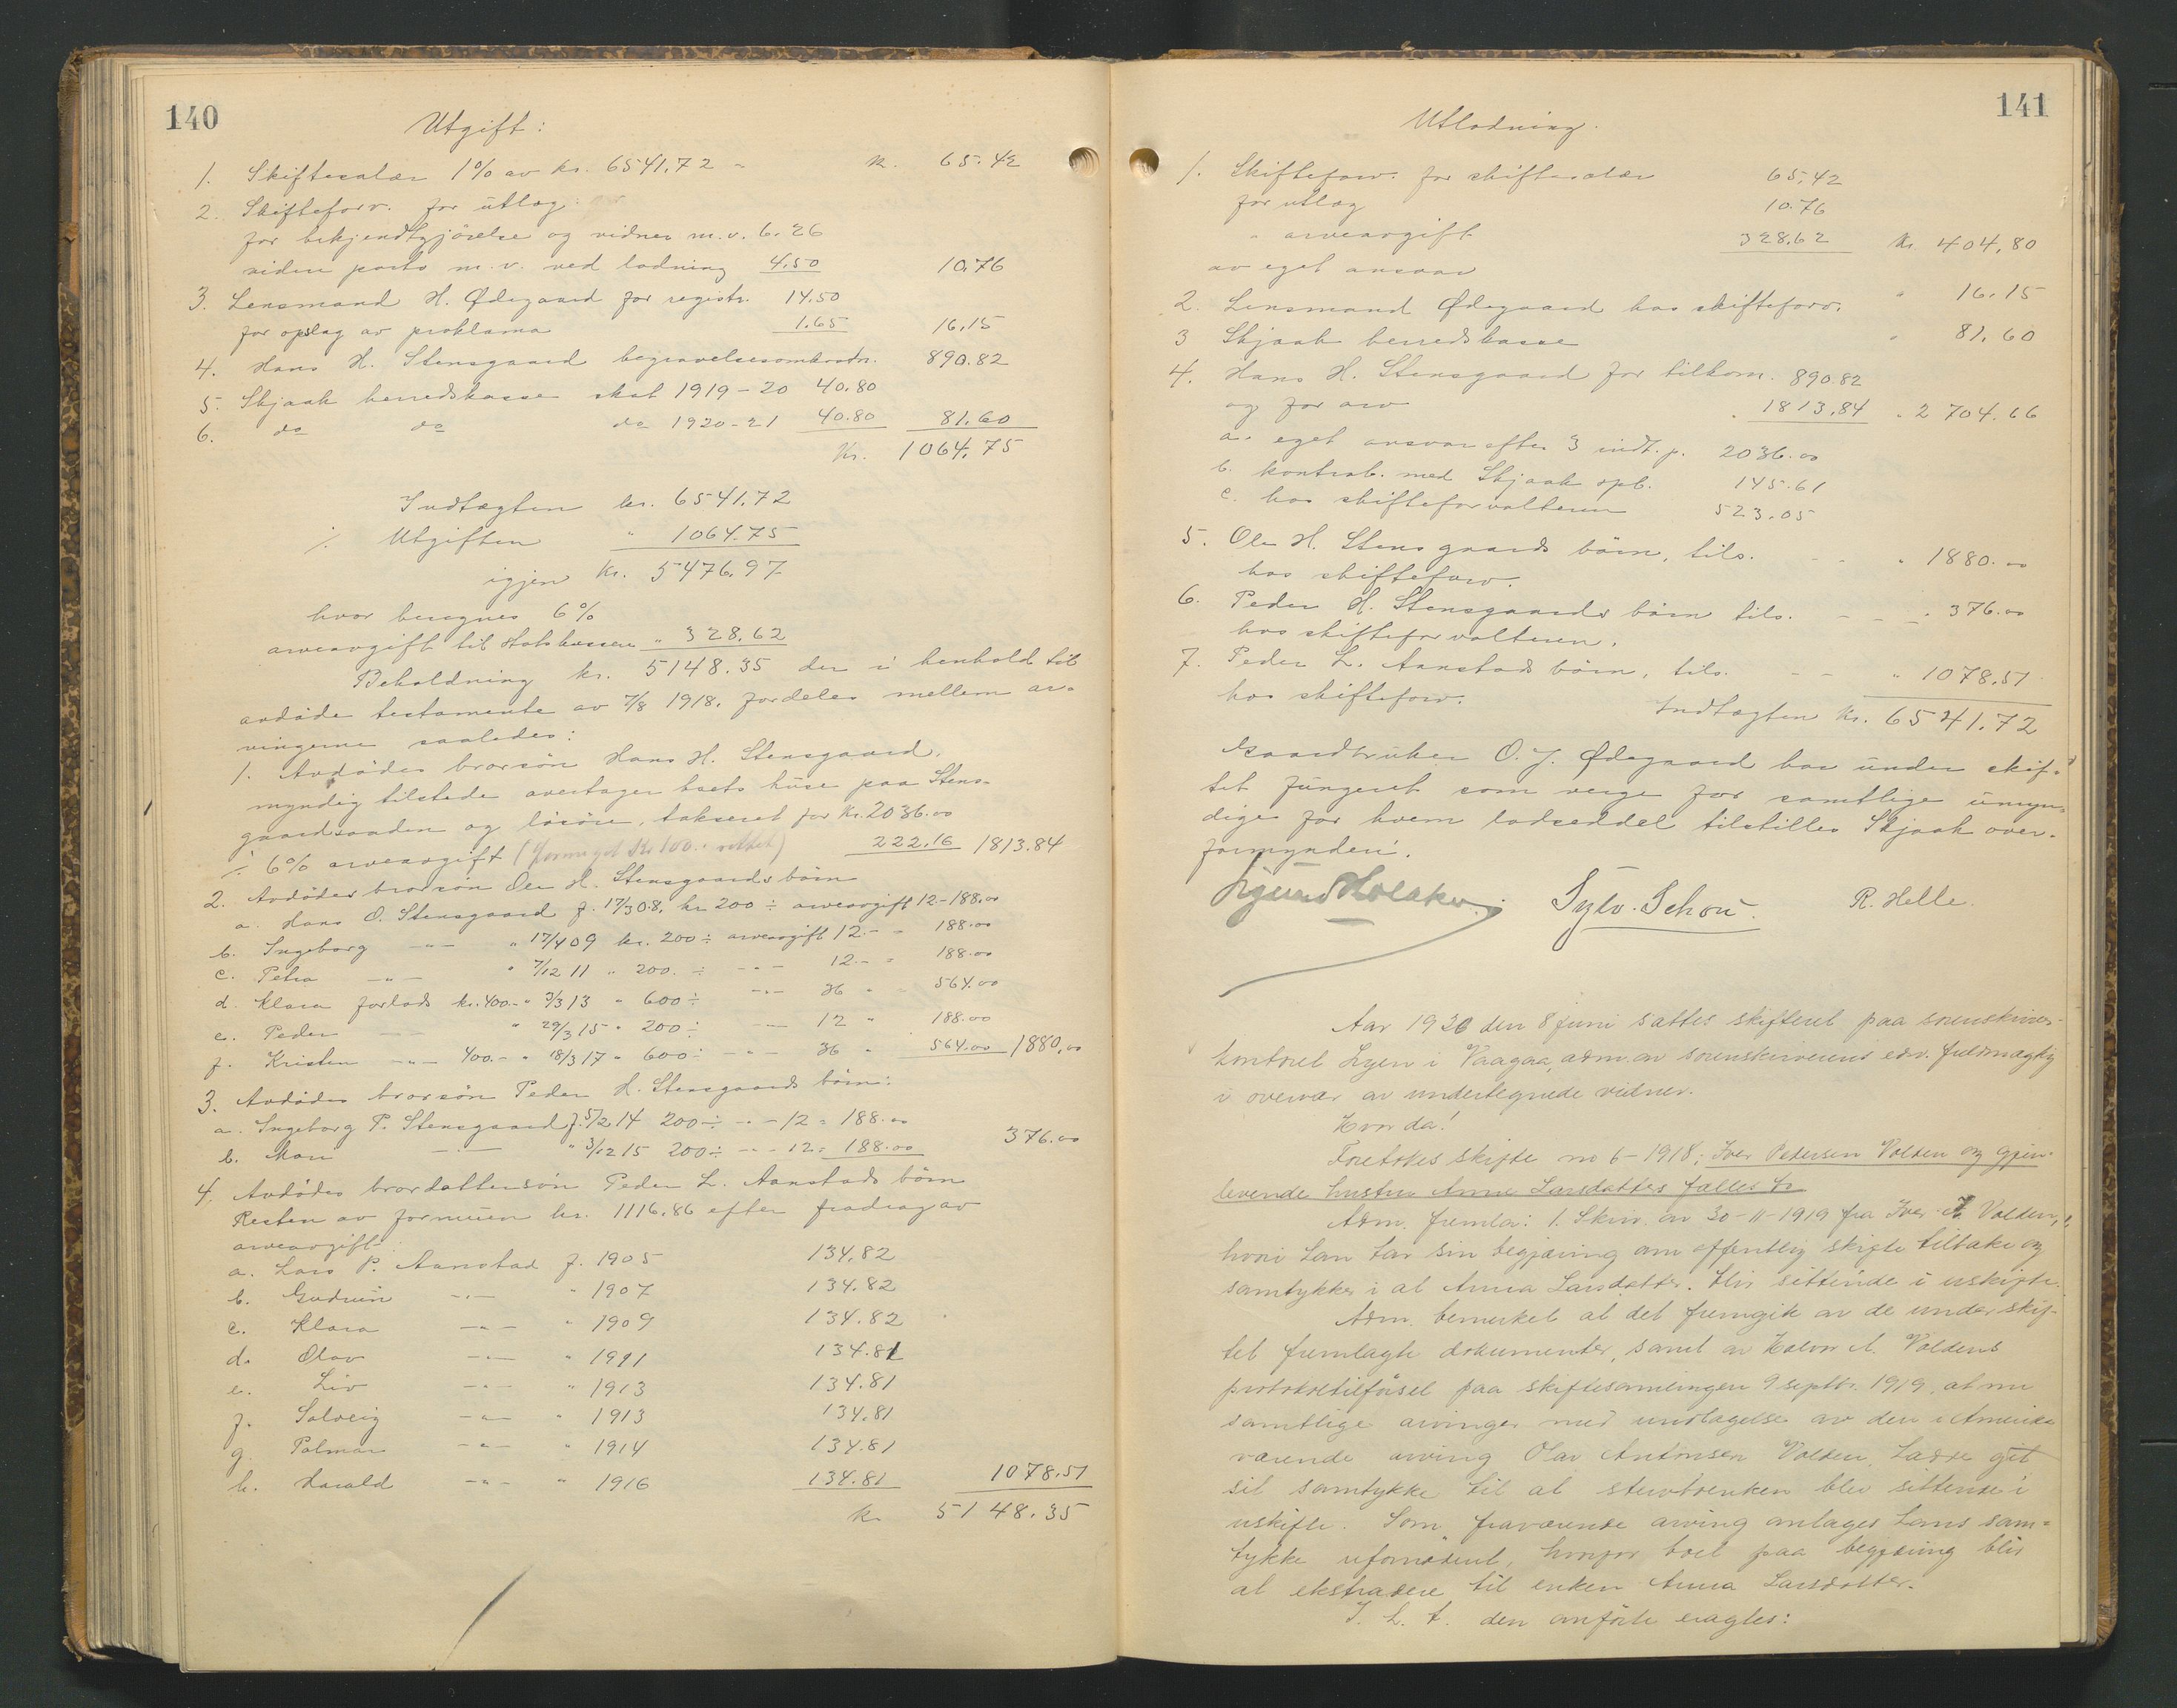 140
Utgift:
1. Skiftesalær 1% av kr. 6541,72 - kr. 65.42
2. Skifteforv. for utlæg:
for bekjendtgjörelse og vidner m.v. 6.26
videre porto m.v. ved lodning 4.50 10,76
3. Lensmand H. Ødegaard for registr. 14.50
for opslag av proklama 1.65 16,15
4. Hans H. Stensgaard begravelsesomkostn. 890.82
5. Skjaak herredskasse skat 1919-20 40.80
6. do do do 1920-21 40.80 81,60
Kr. 1064,75
Indtægten kr. 6541,72
÷ Utgiften " 1064.75
igjen Kr. 5476,97
hvor beregnes 6%
arveavgift til statskassen " 328,62
Beholdning kr. 5148.35 der i henhold til
avdöde testamente av 7/8 1918, fordeles mellem ar-
vingerne saaledes:
1. Avdödes brorsön Hans H. Stensgaard,
myndig tilstede overtager boets huse paa Stens-
gaardsaaden og lösöre, takseret for Kr. 2036.00
÷ 6% arveavgift 222.16 1813.84
2. Avdödes brorsön Ole H. Stensgaards börn
a. Hans O. Stensgaard f. 17/3 08, kr 200 ÷ arveavgift 12 - 188.00
b. Ingeborg -"- " 17/4 09 kr. 200 ÷ arveavgift 12.- - 188.00
c. Petra -"- " 7/12 11 " 200. ÷ -"- 12.- = 188.00
d. Klara forlods kr. 400.- " 3/3 13 " 600 ÷ -"- 36 " 564.00
e. Peder -"- " 29/3 15 " 200 ÷ -"- 12 " 188.00
f. Kristen -"- 400.- " 18/3 17 " 600 ÷ -"- 36 " 564.00 1880,00
3. Avdödes brorsön Peder H. Stensgaards börn:
a. Ingeborg P. Stensgaard f. 5/2 14 200 ÷ -"- 12 = 188.00
b. Mari -"- " 3/12 15 200 ÷ -"- 12 = 188.00 376.00
4. Avdödes brordattersön Peder L. Aanstads börn
Resten av formuen kr. 1116.86 efter fradrag av
arveavgift:
a. Lars P. Aanstad f. 1905 134,82
b. Gudrun -"- " 1907 134.82
c. Klara -"- " 1909 134.82
d. Olav -"- " 1911 134.81
e. Liv -"- " 1913 134.81
f. Solveig -"- " 1913 134.81
g. Palmar -"- " 1914 134.81
h. Harald -"- " 1916 134.81 1078.51
kr. 5148.35
141
Utlodning.
1. Skifteforv. for skiftesalær 65,42
for utlæg 10.76
" arveavgift 328,62 Kr. 404,80
av eget ansvar
2. Lensmand Ødegaard hos skifteforv. " 16.15
3 Skjaak herredskasse " 81,60
4. Hans H. Stensgaard for tilkom. 890.82
og for arv " 1813.84 " 2704.66
a. eget ansvar efter 3 indt. p. 2036.00
b. kontrab. med Skjaak spb. 145.61
c. hos skifteforvalteren 523.05
5. Ole H. Stensgaards börn, tils. - - " 1880.00
hos skifteforv.
6. Peder H. Stensgaards börn tils. - - - " 376.00
hos skifteforvalteren.
7. Peder L. Aanstads börn, tils. - - " 1078,51
hos skifteforv.
Indtægten Kr. 6541.72
Gaardbruker O. J. Ødegaard har under skif-
tet fungeret som verge for samtlige umyn-
dige for hvem lodseddel tilstilles Skjaak over-
formynderi.
Sylv. Schou. R. Helle.
Aar 1920 den 8 juni sattes skifteret paa sorenskriver-
kontoret Lyen i Vaagaa, adm. av sorenskriverens edsv. fuldmægtig
i overvær av undertegnede vidner.
Hvorda!
Foretokes skifte no 6-1918: Iver Petersen Volden og gjen-
levende hustru Anna Larsdatters fælles bo
Adm. fremla: 1. Skriv. av 30-11-1919 fra Iver I. Volden,
hvori han tar sin begjæring om offentlig skifte tilbake og
samtykker i at Anna Larsdatter blir sittende i uskifte.
Adm. bemerket at det fremgik av de under skif-
tet fremlagte dokumenter, samt av Halvor A. Voldens
protokoltilförsel paa skiftesamlingen 9 septbr. 1919, at nu
samtlige arvinger med undtagelse av den i Amerika
værende arving Olav Antonsen Volden, hadde git
sit samtykke til at stervboenken blev sittende i
uskifte. Som fraværende arving antages hans sam-
tykke ufornödent, hvorfor boet paa begjæring blir
at ekstradere til enken Anna Larsdatter.
I. h. t. den anförte eragtes: